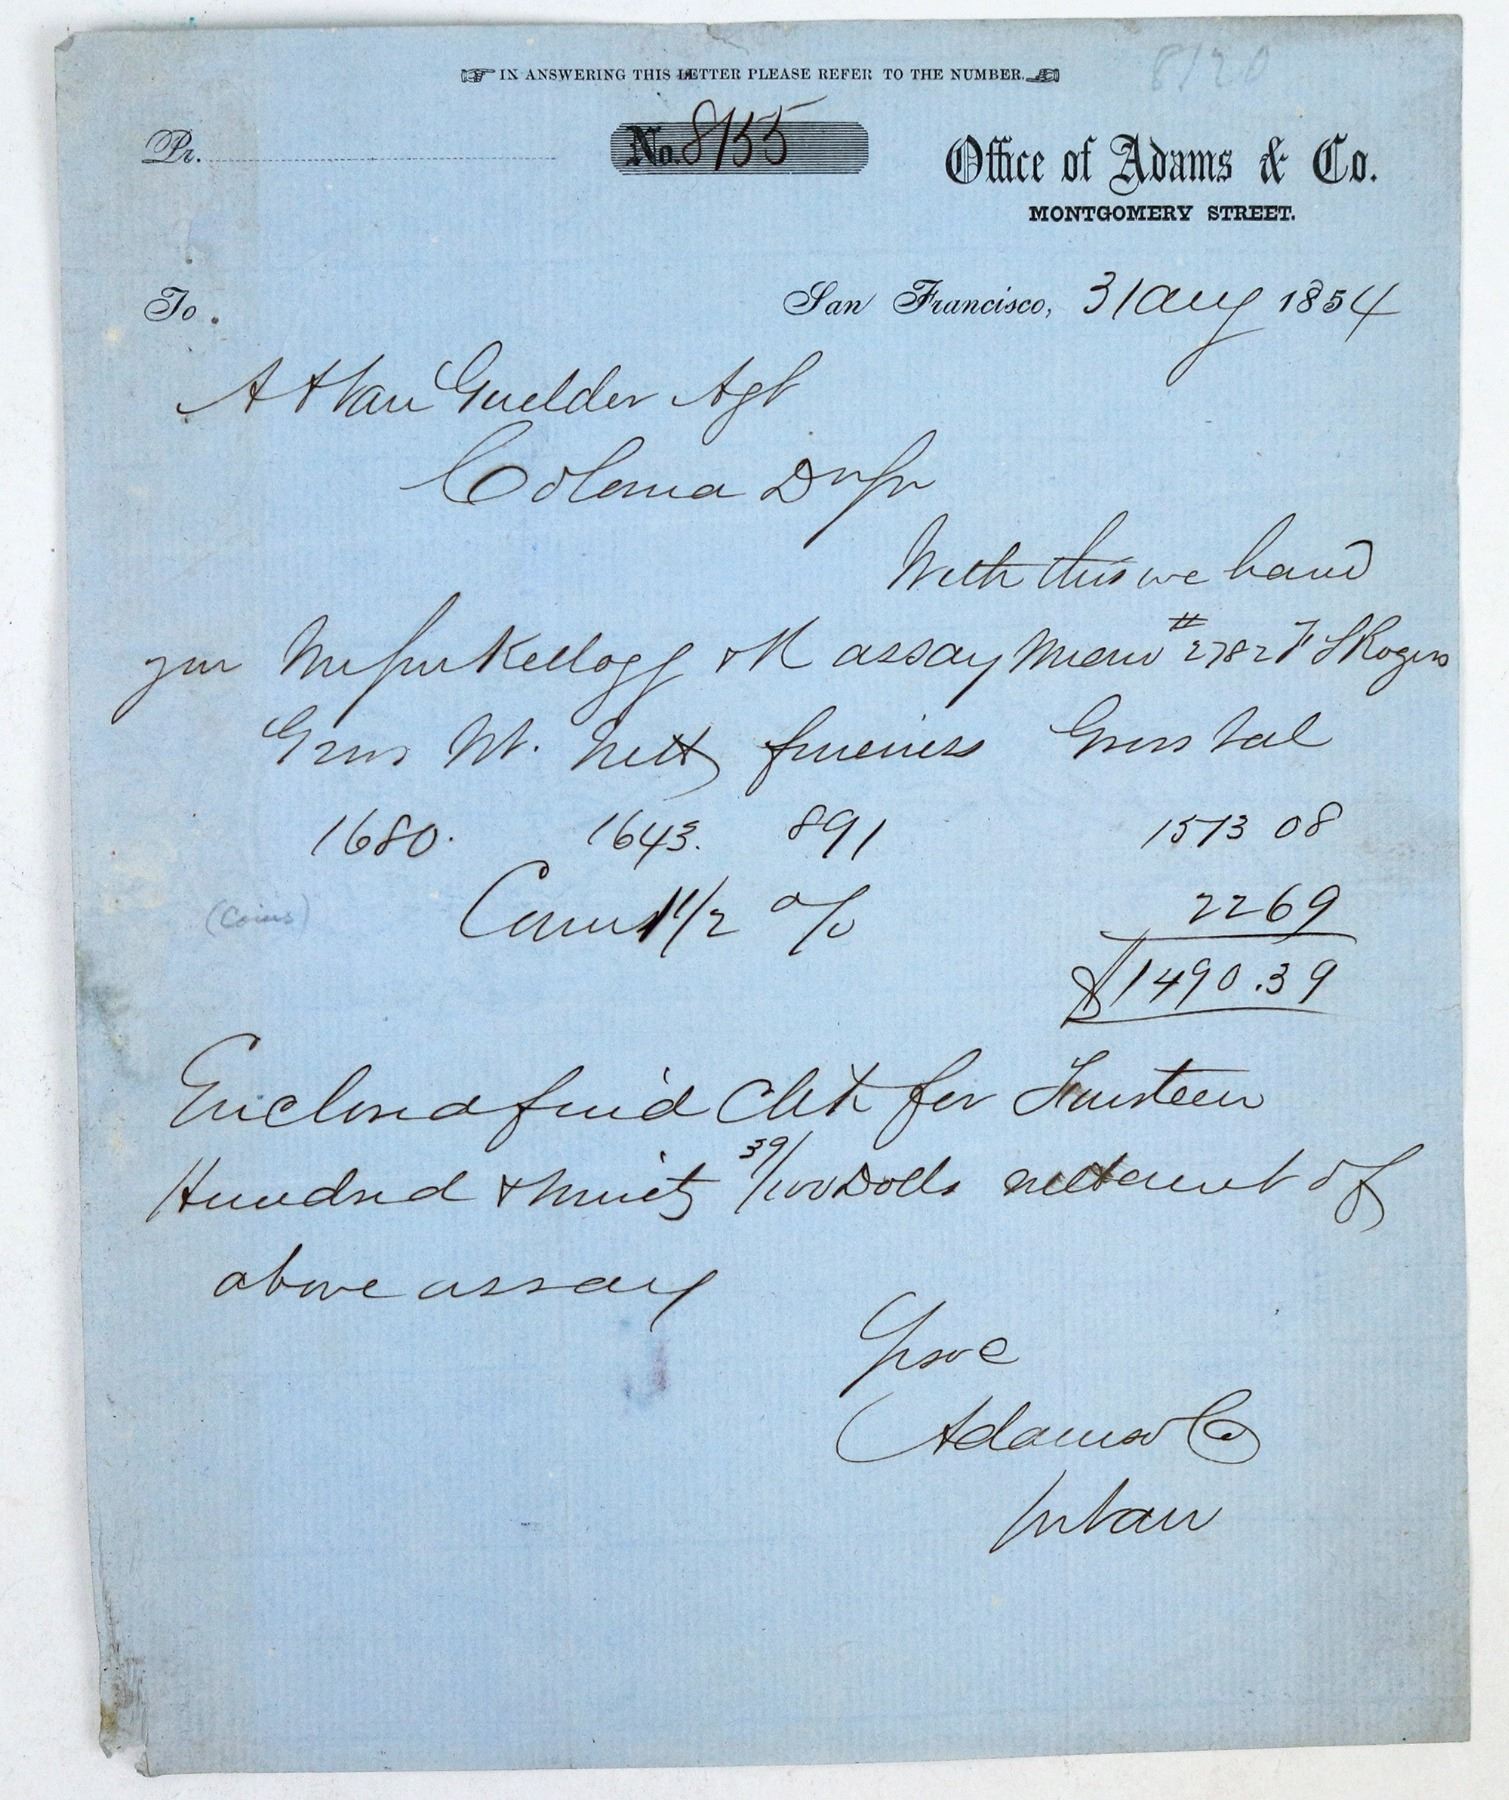 8120
IN ANSWERING THIS LETTER PLEASE REFER TO THE NUMBER.
Pr. No. 8155 Office of Adams & Co.
MONTGOMERY STREET.
To San Francisco, 31 Aug 1854
A A Van Guelder Agt
Coloma Dr Sir
With this we hand
you Messrs Kellogg & H assay Memo # 2782 F S Rogers
Gross Wt. Nett fineness Gross Val
1680. 1643. 891 1513 08
(Coins) Coms 1 1/2 % 22 69
$1490.39
Enclosed find Chk for Fourteen
Hundred & Ninety 39/100 Dolls nett amt of
above assay
Adams & Co